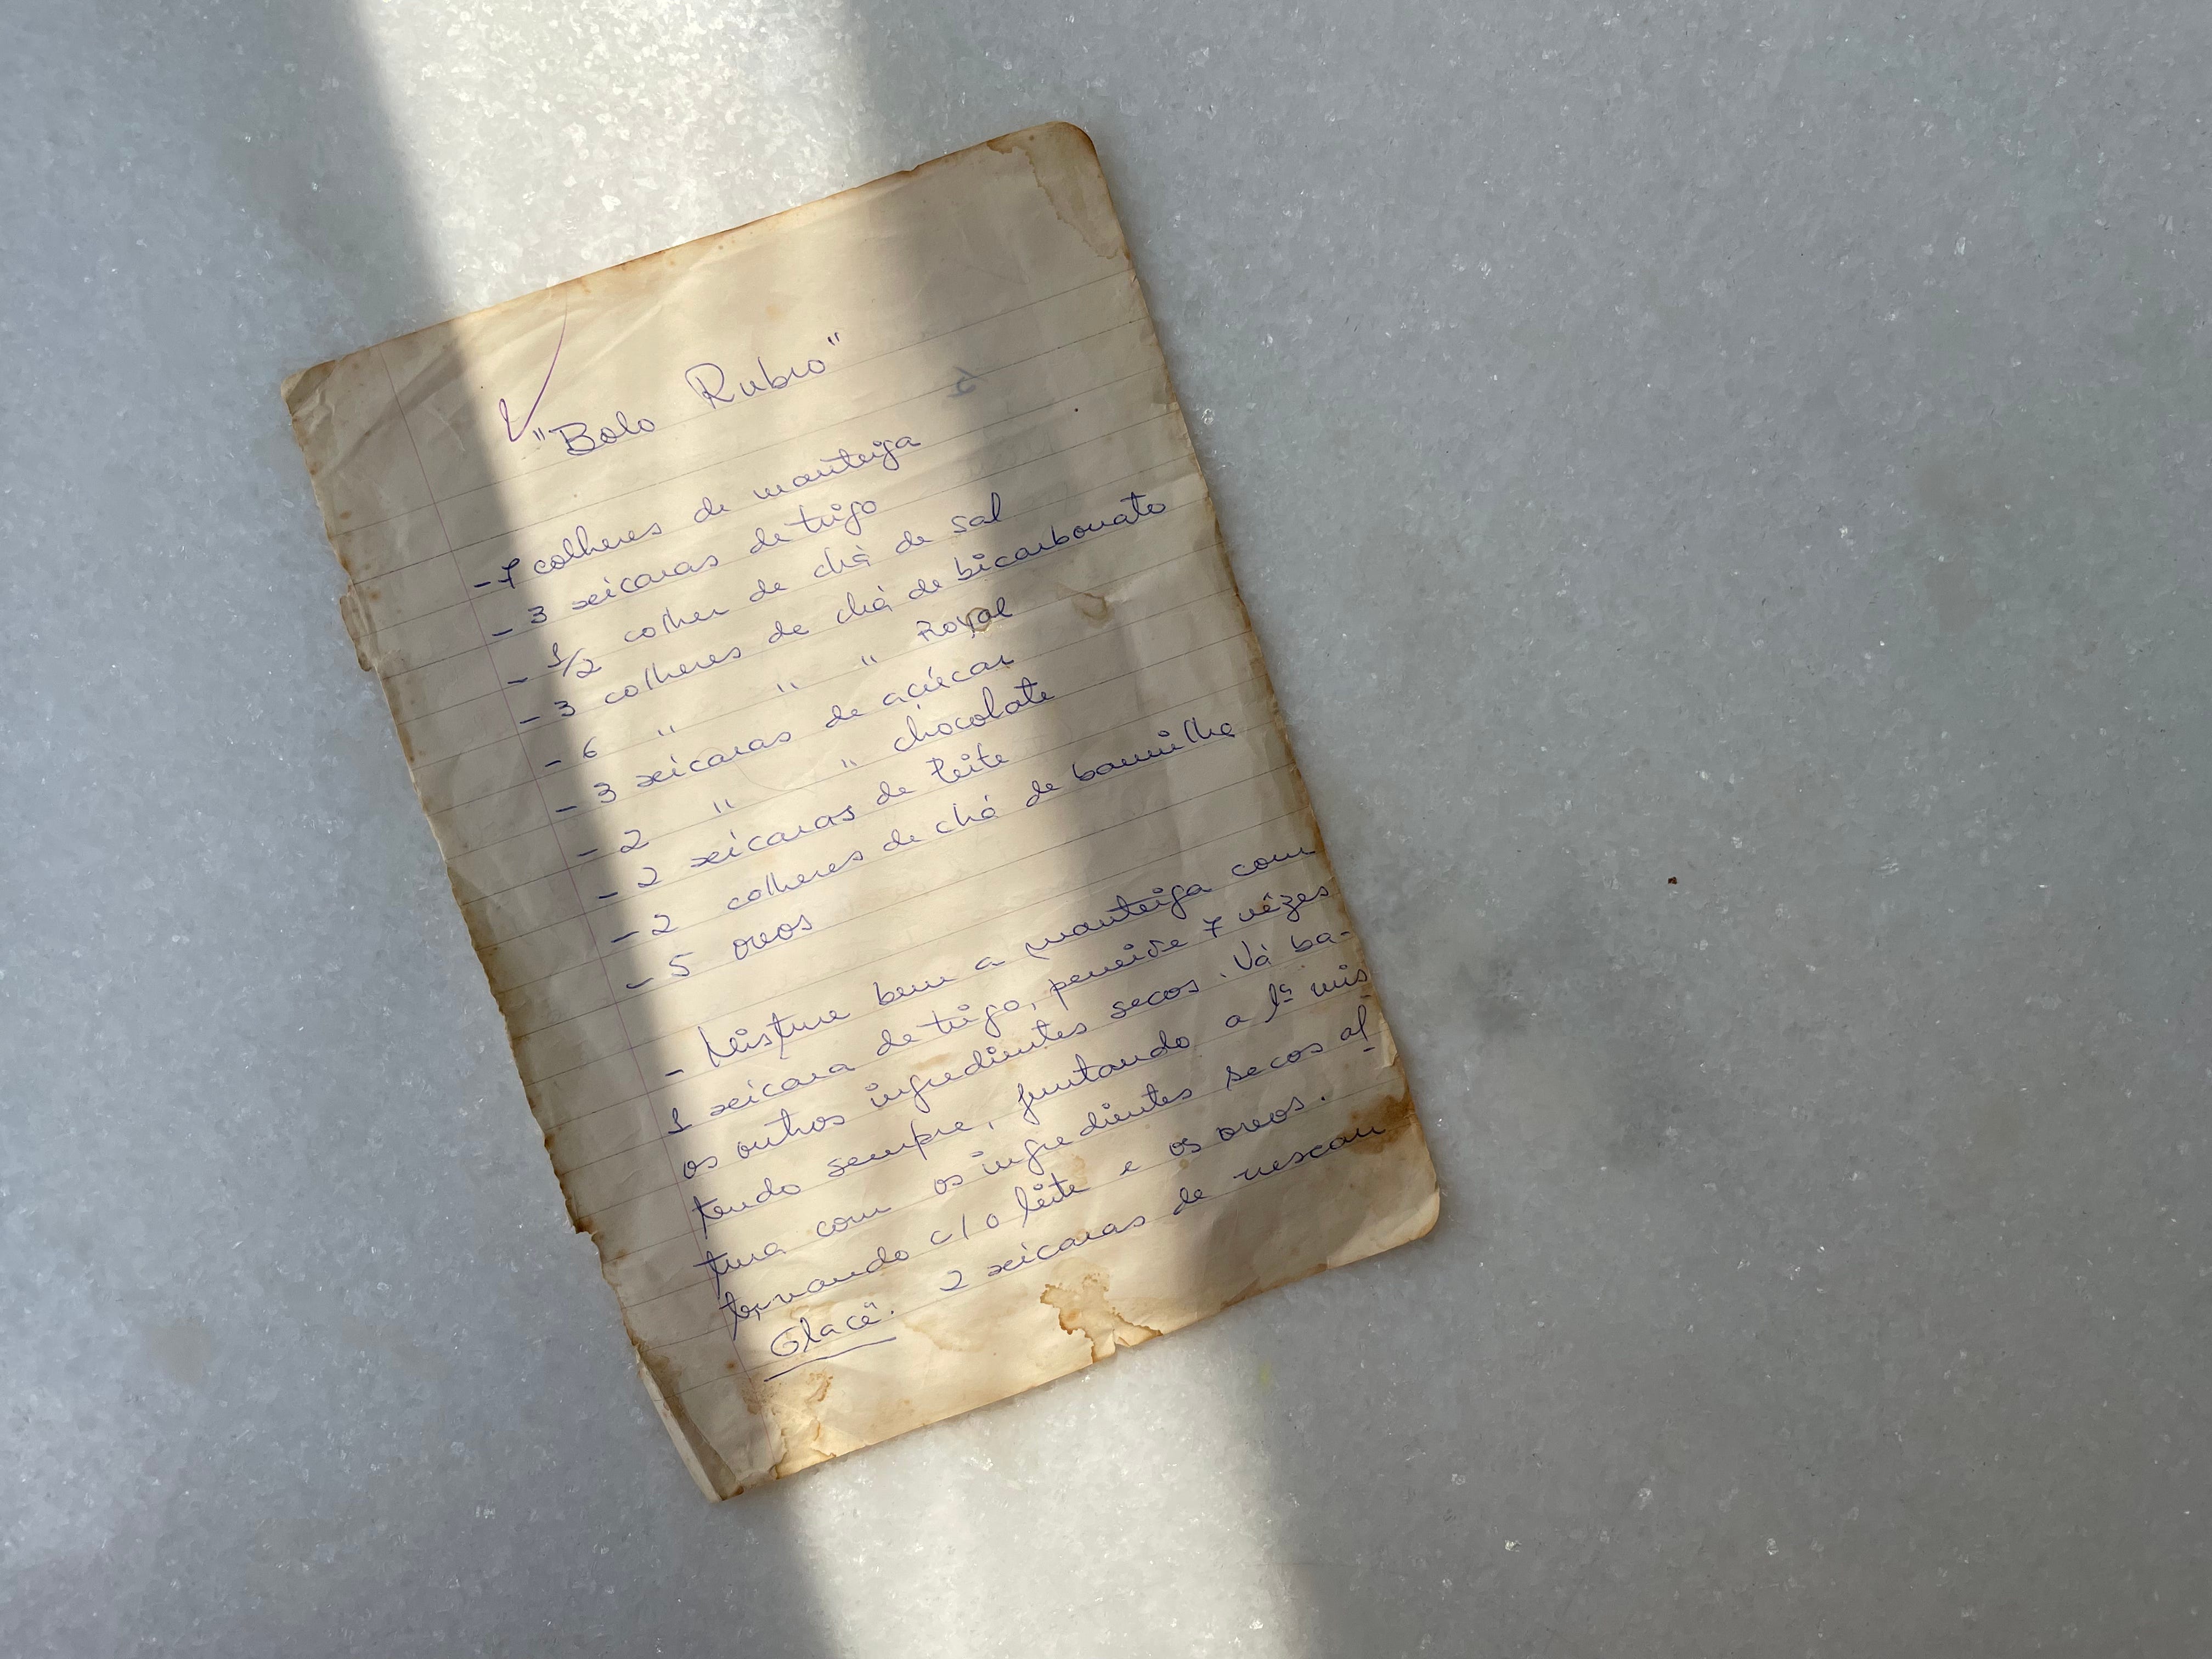 "Bolo Rubro"
- 7 colheres de manteiga
- 3 xícaras de trigo
- 1/2 colher de chá de sal
- 3 colheres de chá de bicarbonato
- 6 " " " Royal
- 3 xícaras de açúcar
- 2 " " chocolate
- 2 xícaras de leite
- 2 colheres de chá de baunilha
- 5 ovos
- Misture bem a manteiga com
1 xícara de trigo, peneire 7 vêzes
os outros ingredientes secos. Vá ba-
tendo sempre, juntando a 1ª mis
tura com os ingredientes secos al
ternando c/ o leite e os ovos.
Glacê. 2 xícaras de nescau